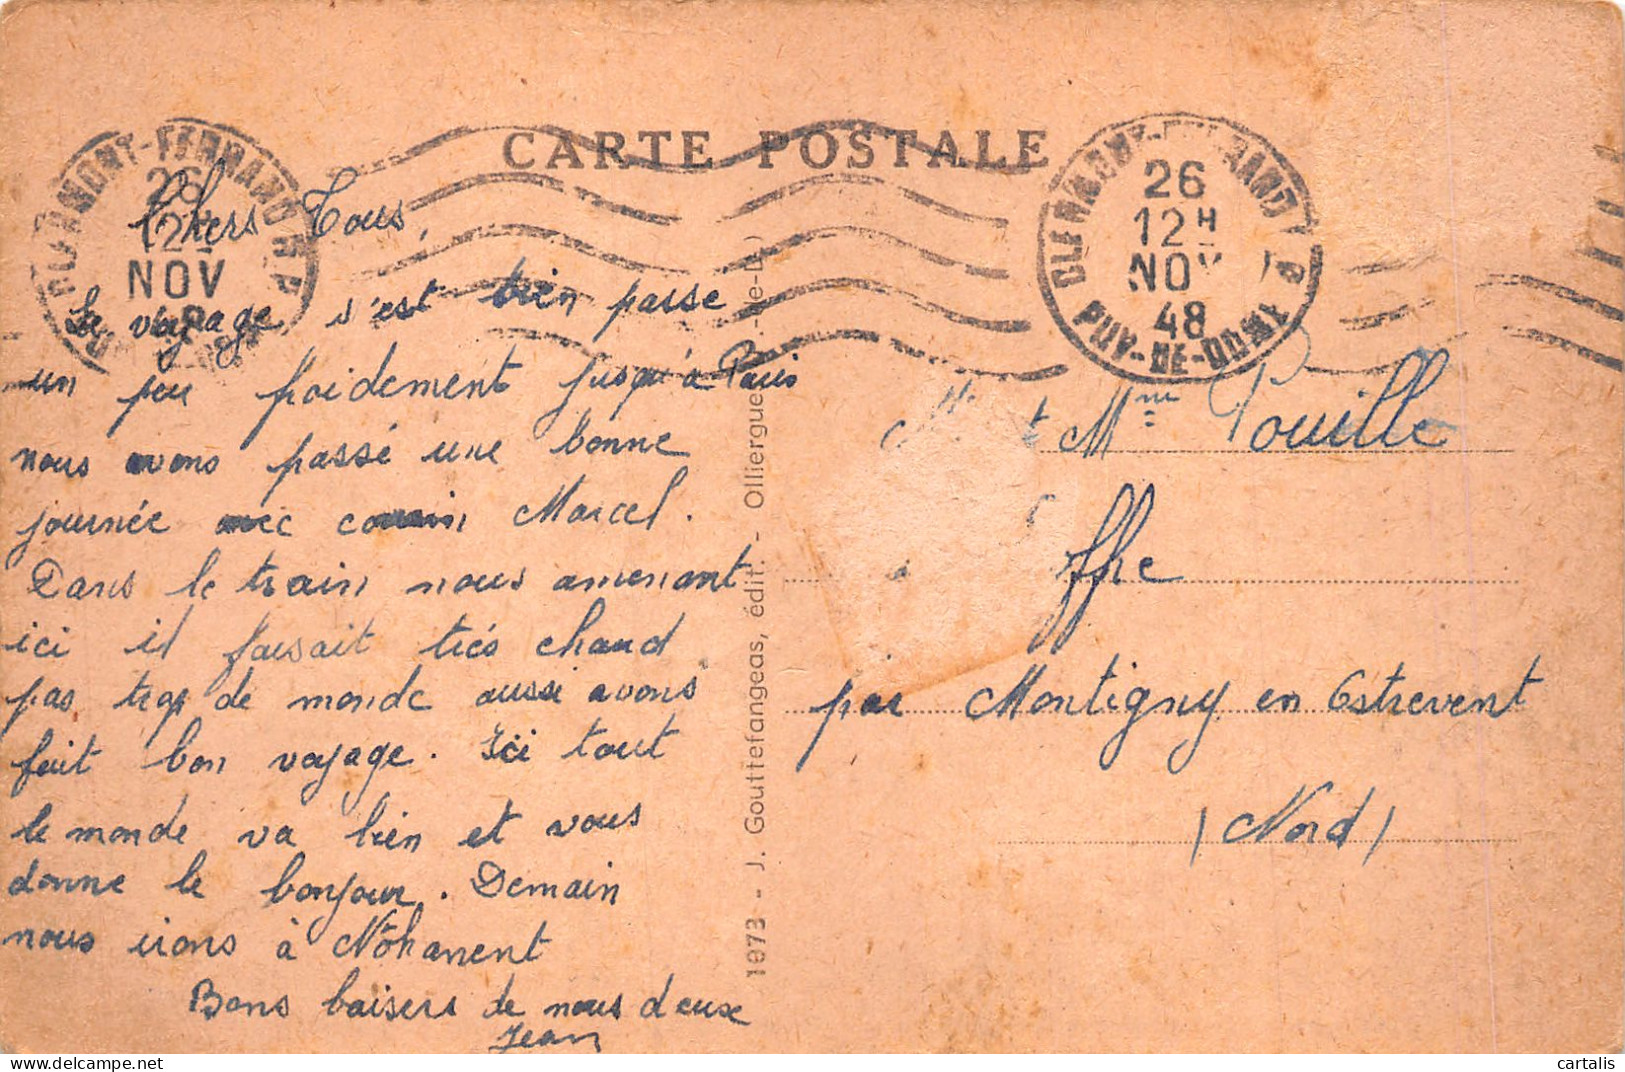 CARTE POSTALE
CLERMONT-FERRAND R.P.
26
12H
NOV
CLERMONT-FERRAND R.P.
26
12H
NOV
48
PUY-DE-DOME
Chers Tous,
Le voyage s'est bien passé
un peu froidement jusqu'à Paris
nous avons passé une bonne
journée avec cousin Marcel.
Dans le train nous amenant
ici il faisait très chaud
pas trop de monde aussi avons
fait bon voyage. Ici tout
le monde va bien et vous
donne le bonjour. Demain
nous irons à Nohanent
Bons baisers de nous deux
Jean
1973 - J. Gouttefangeas, édit. - Olliergues (P.-de-D.)
Mr et Mme Pouille
à Effhe
par Montigny en Ostrevent
(Nord)
cartalis